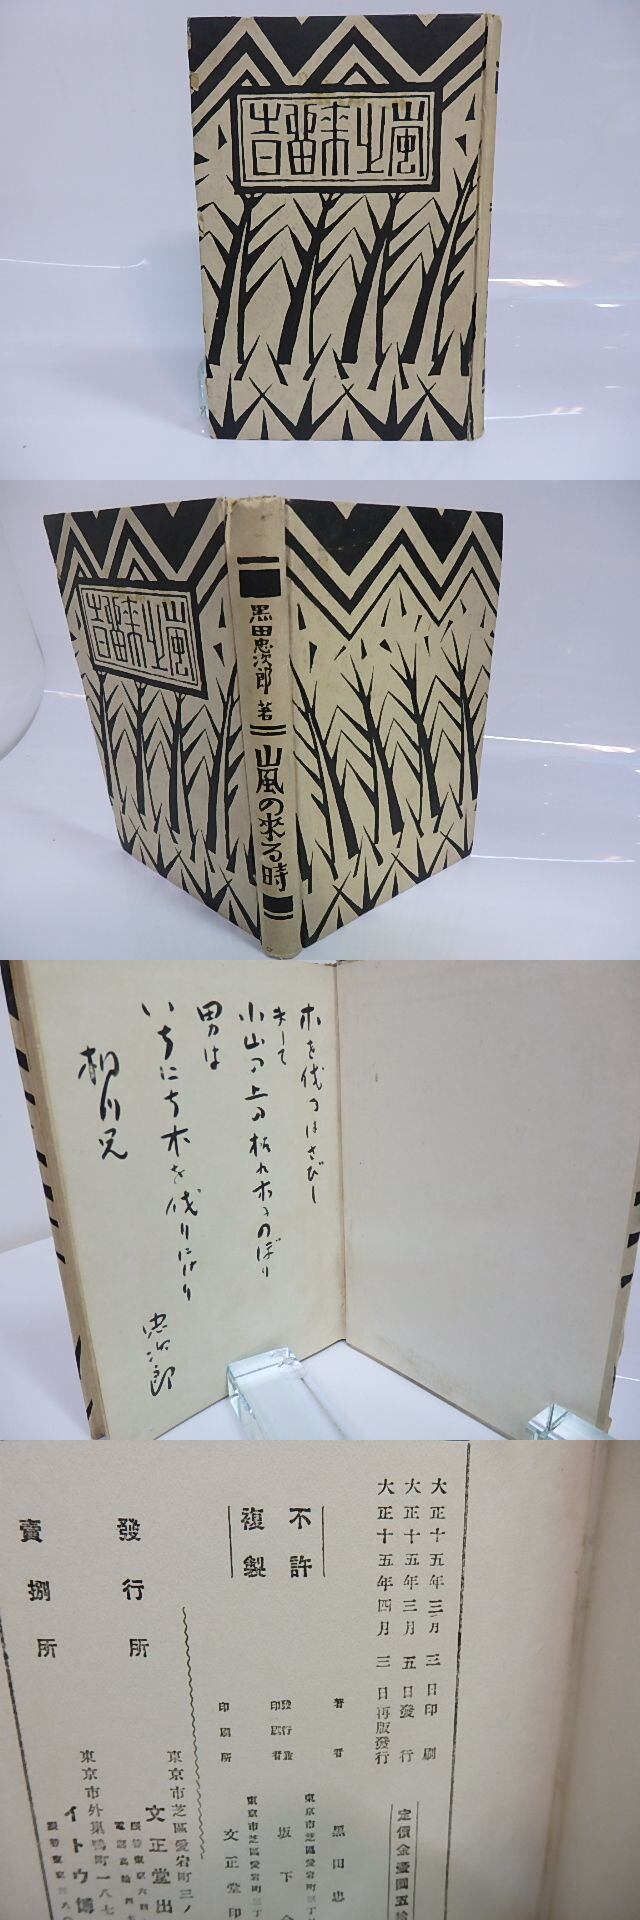 嵐之来留時
黒田忠次郎 著
嵐の來る時
木を伐つはさびし
キーて
小山の上の枯れ木にのぼり
男は
いちにち木を伐りにけり
相川兄
忠次郎
大正十五年三月三日印刷
大正十五年三月五日發行
大正十五年四月三日再版發行
定價金壹圓五拾
不許
複製
著者 黒田忠
發行兼
印刷者
東京市芝區愛宕町三丁
坂下
印刷所
東京市芝區愛宕町三丁
文正堂印
發行所
東京市芝區愛宕町三ノ
文正堂出
賣捌所
東京市外巣鴨町一八七
イトウ